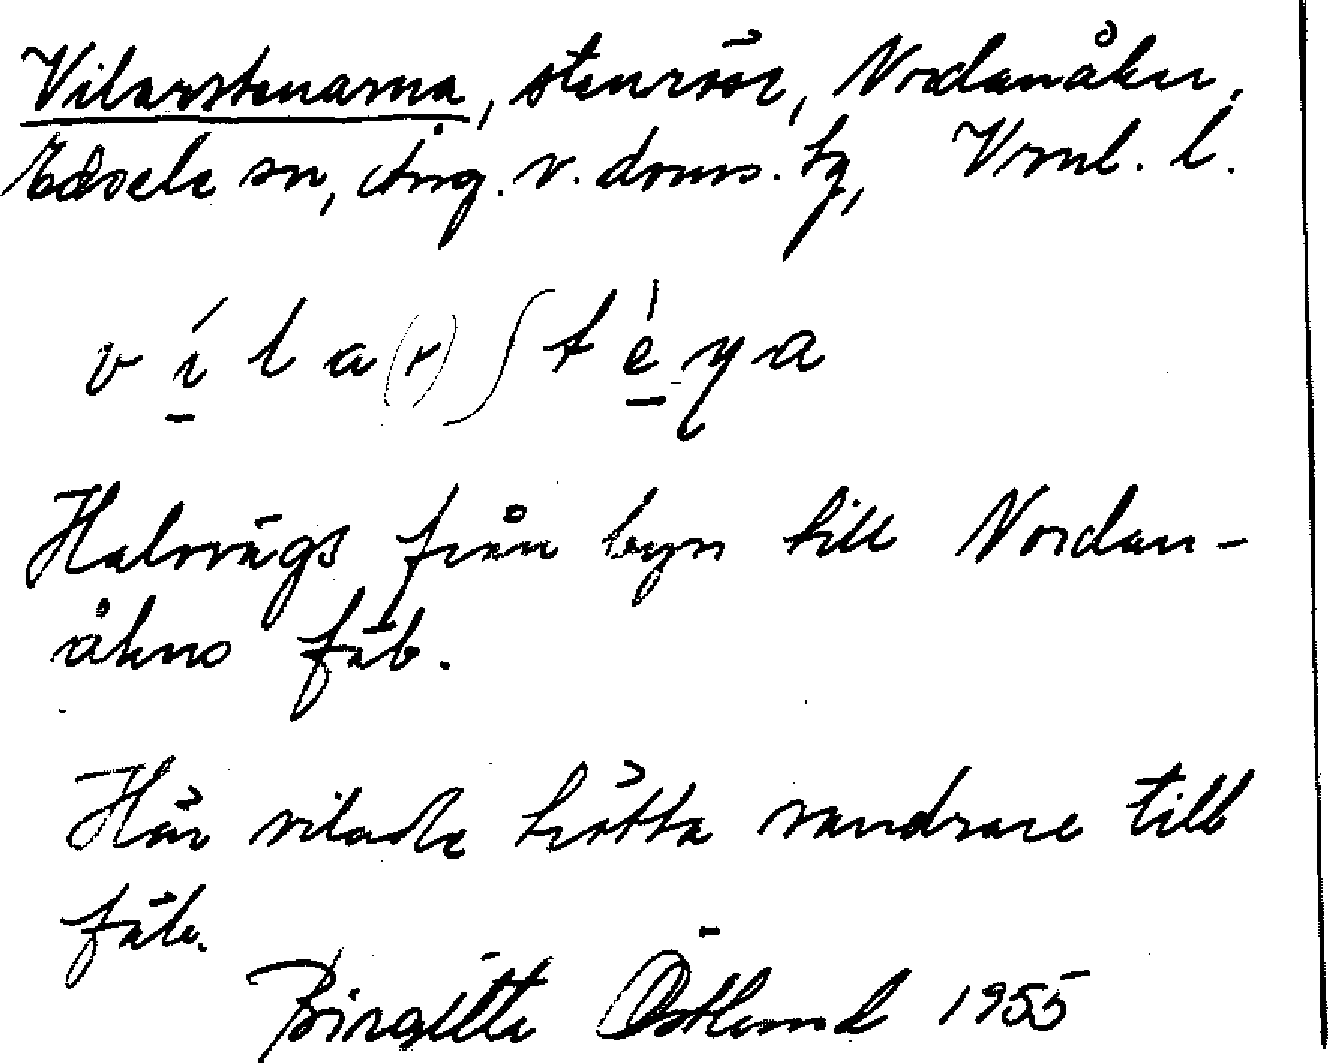 Vilarstenarna, stenrös, Nordanåker,
Edsele sn, Ång. v. doms. tg, Vrnl. l.
v í l a (r) ʃ t é ɳ a
Halvvägs från byn till Nordan-
åkers fäb.
Här vilade trötta vandrare till
fäb.
Birgitta Östlund 1955